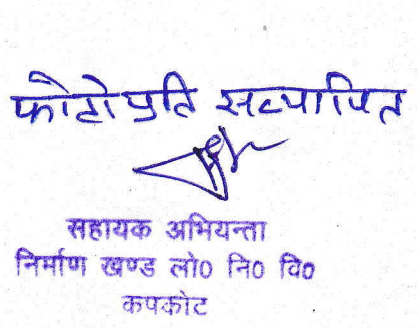 फोटोप्रति सत्यापित
सहायक अभियन्ता
निर्माण खण्ड लो0 नि0 वि0
कपकोट